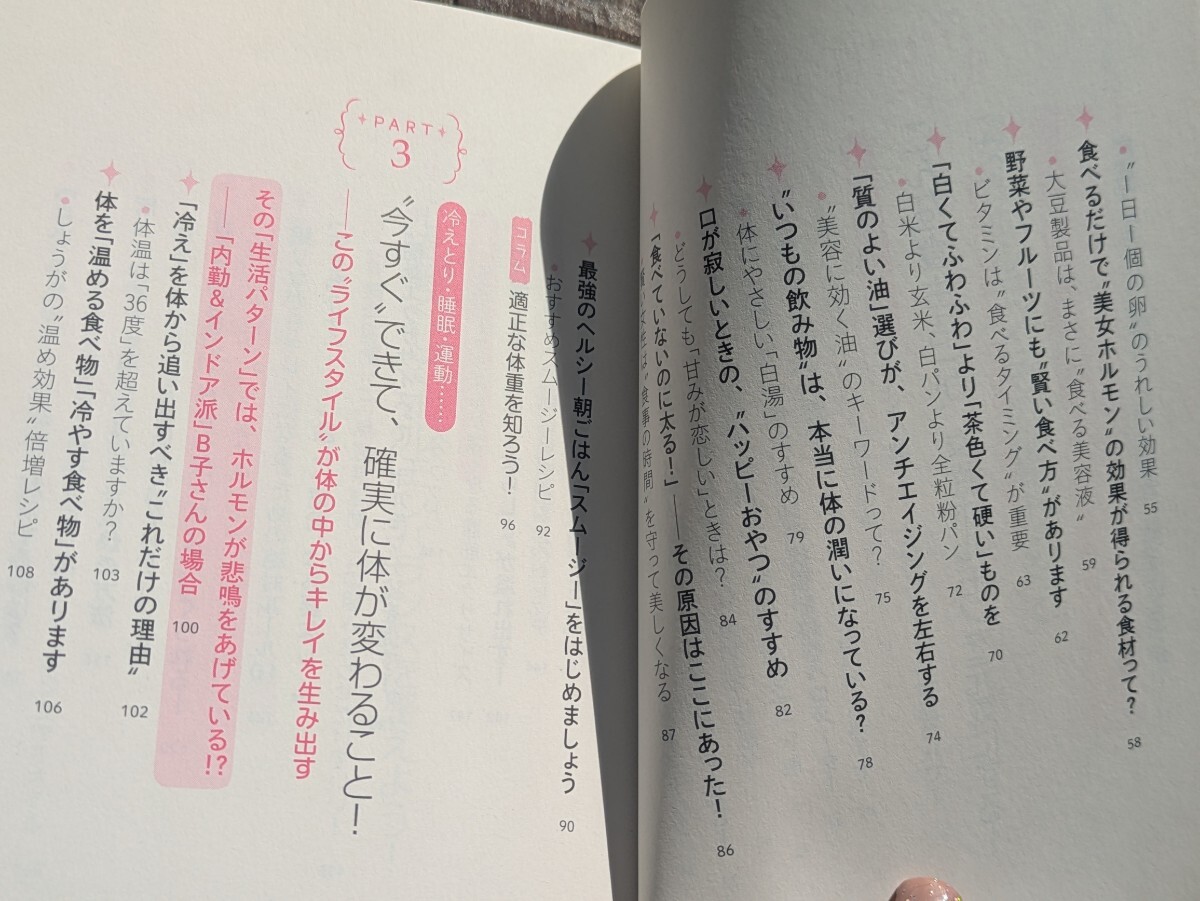 "一日一個の卵"のうれしい効果 55
食べるだけで"美女ホルモン"の効果が得られる食材って? 58
大豆製品は、まさに"食べる美容液" 59
野菜やフルーツにも"賢い食べ方"があります 62
ビタミンは"食べるタイミング"が重要 63
「白くてふわふわ」より「茶色くて硬い」ものを 70
白米より玄米、白パンより全粒粉パン 72
「質のよい油」選びが、アンチエイジングを左右する 74
"美容に効く油"のキーワードって? 75
"いつもの飲み物"は、本当に体の潤いになっている? 78
体にやさしい「白湯」のすすめ 79
口が寂しいときの、"ハッピーおやつ"のすすめ 82
どうしても「甘みが恋しい」ときは? 84
「食べていないのに太る!」——その原因はここにあった! 86
"食事の時間"を守って美しくなる 87
最強のヘルシー朝ごはん「スムージー」をはじめましょう 90
おすすめスムージーレシピ 92
コラム 適正な体重を知ろう! 96
PART 3
冷えとり・睡眠・運動……
"今すぐ"できて、確実に体が変わること!
——この"ライフスタイル"が体の中からキレイを生み出す
その「生活パターン」では、ホルモンが悲鳴をあげている!?
——「内勤&インドア派」B子さんの場合 100
「冷え」を体から追い出すべき"これだけの理由" 102
体温は「36度」を超えていますか? 103
体を「温める食べ物」「冷やす食べ物」があります 106
しょうがの"温め効果"倍増レシピ 108